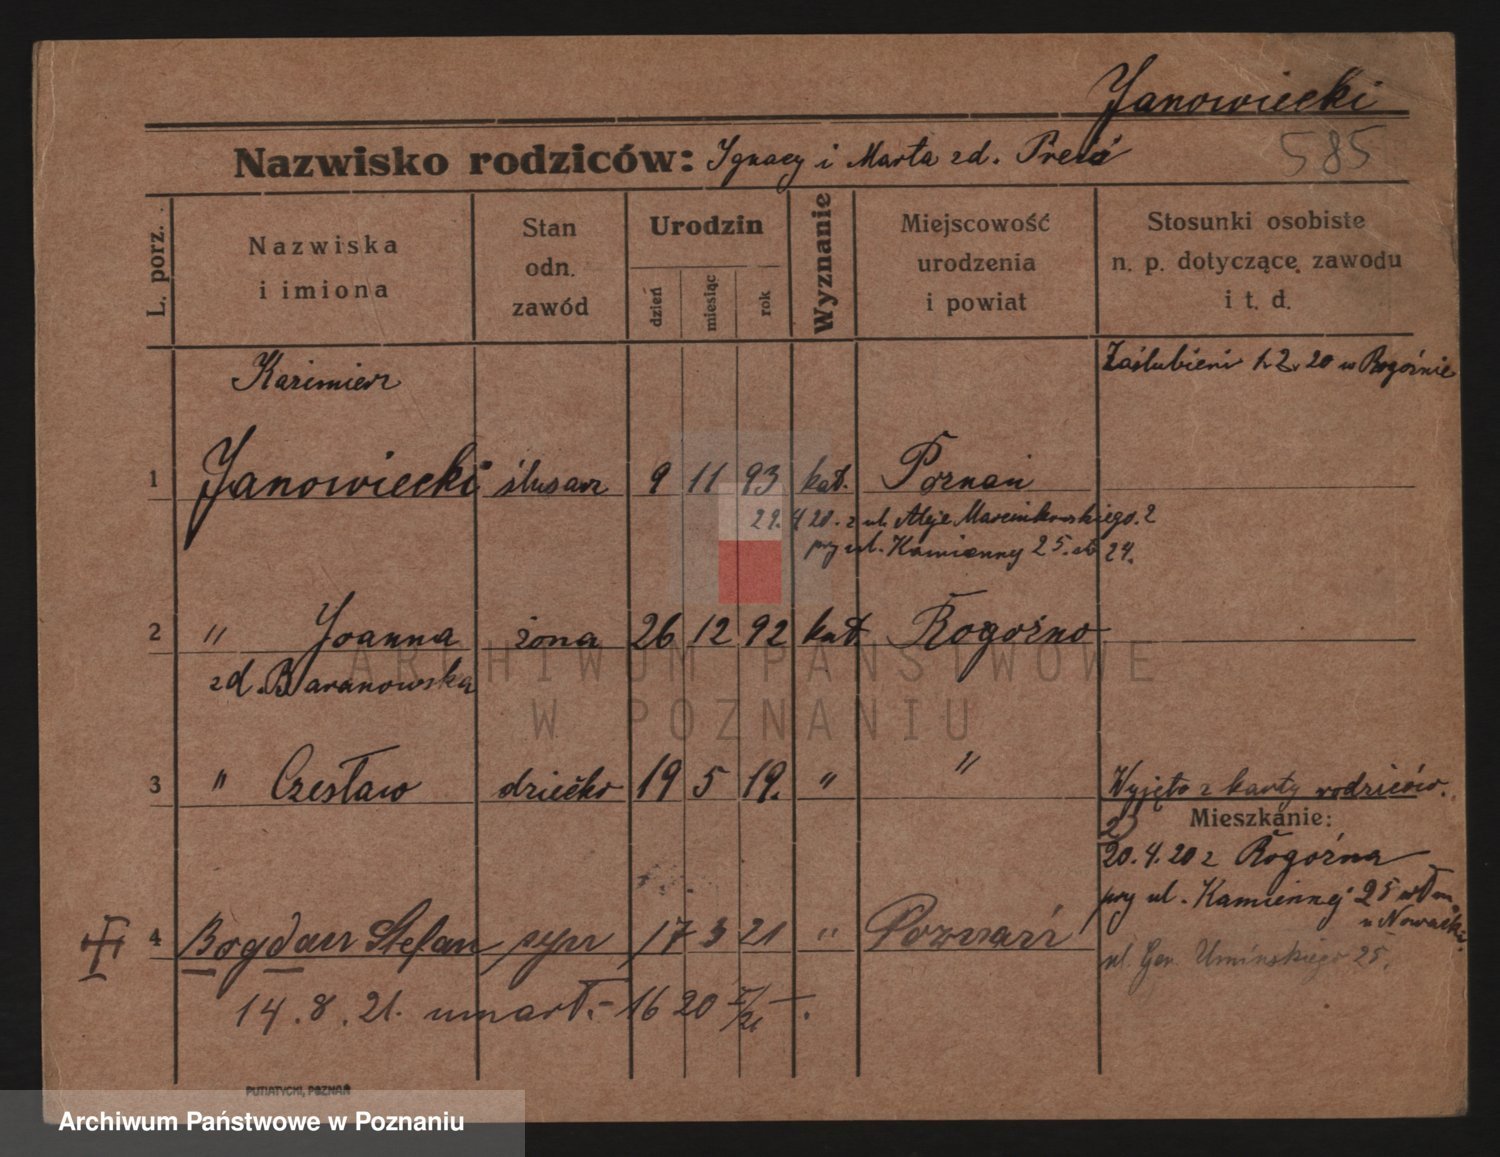 Janowiecki
585
Nazwisko rodziców: Ignacy i Marta zd.
L. porz. Nazwiska i imiona Stan odn. zawód Urodzin dzień miesiąc rok Wyznanie Miejscowość urodzenia i powiat Stosunki osobiste n. p. dotyczące zawodu i t. d.
Kazimierz
Zaślubieni 1.2.20 w Rogoźnie
1 Janowiecki ślusarz 9 11 93 kat. Poznań
29.4 20. z ul. Aleje Marcinkowskiego. 2
przy ul. Kamienny 25. 24.
2 " Joanna żona 26 12 92 kat Rogoźno
zd. Baranowska
3 " Czesław dziecko 19 5 19. " "
Wyjęto z karty rodziców.
Mieszkanie:
20.4.20 z Rogoźna
przy ul. Kamiennej 25
u Nowacki
4 Bogdan Stefan syn 17 3 21 " Poznań
ul. Gen. Umińskiego 25.
14.8.21. umarł.- 16 20 /21 -.
PUTIATYCKI, POZNAŃ
ARCHIWUM PAŃSTWOWE
W POZNANIU
Archiwum Państwowe w Poznaniu